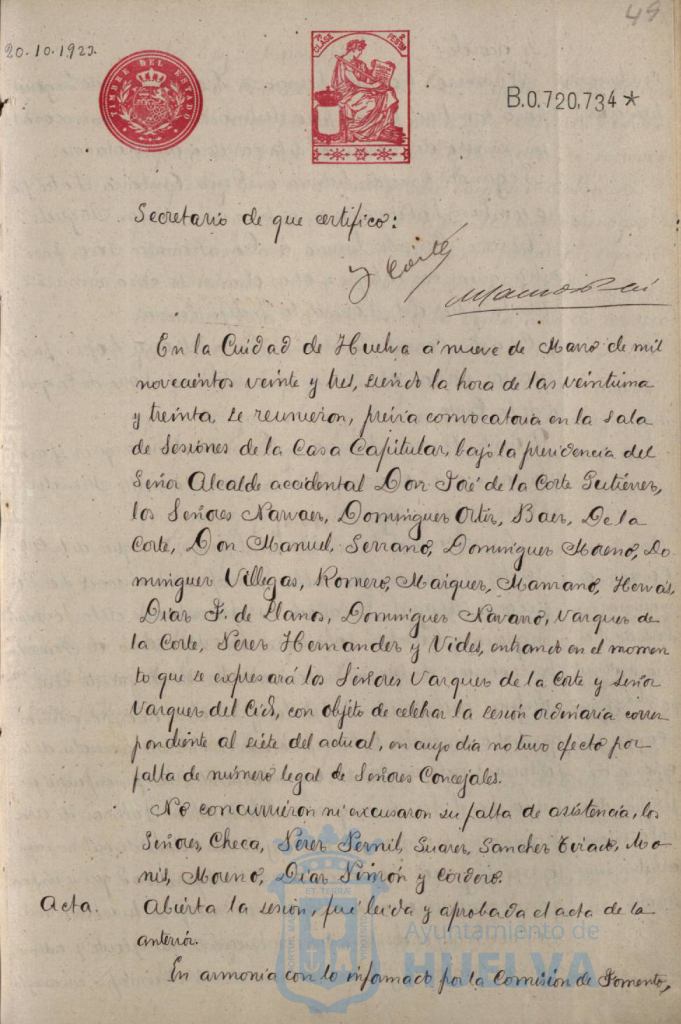 49
20.10.1923.
TIMBRE DEL ESTADO
CLASE
B.0,720,734*
Secretario de que certifico:
y Corté
En la Cuidad de Huelva á nueve de Marzo de mil
novecientos veinte y tres, siendo la hora de las veintiuna
y treinta, se reunieron, previa convocatoria en la sala
de Sesiones de la Casa Capitular, bajo la presidencia del
Señor Alcalde accidental Don José de la Corte Gutiérrez,
los Señores Narvaez, Domínguez Ortiz, Baez, De la
Corte, Don Manuel, Serrano, Domínguez Moreno, Do-
minguez Villegas, Romero, Maiquez, Manzano, Hervás,
Diaz F. de Llanos, Dominguez Navarro, Vazquez de
la Corte, Perez Hernandez y Vides, entrando en el momen-
to que se expresará los Señores Vazquez de la Corte y Señor
Vazquez del Cid, con objeto de celebrar la sesión ordinaria corres-
pondiente al siete del actual, en cuyo dia no tuvo efecto por
falta de número legal de Señores Concejales.
No concurrieron ni excusaron su falta de asistencia, los
Señores, Checa, Perez Pernil, Suarez, Sanchez Tirado, Mo-
nis, Moreno, Diaz Simón y Cordero.
Acta. Abierta la sesión, fué leida y aprobada el acta de la
anterior.
En armonía con lo informado por la Comisión de Fomento,
Ayuntamiento de
HUELVA